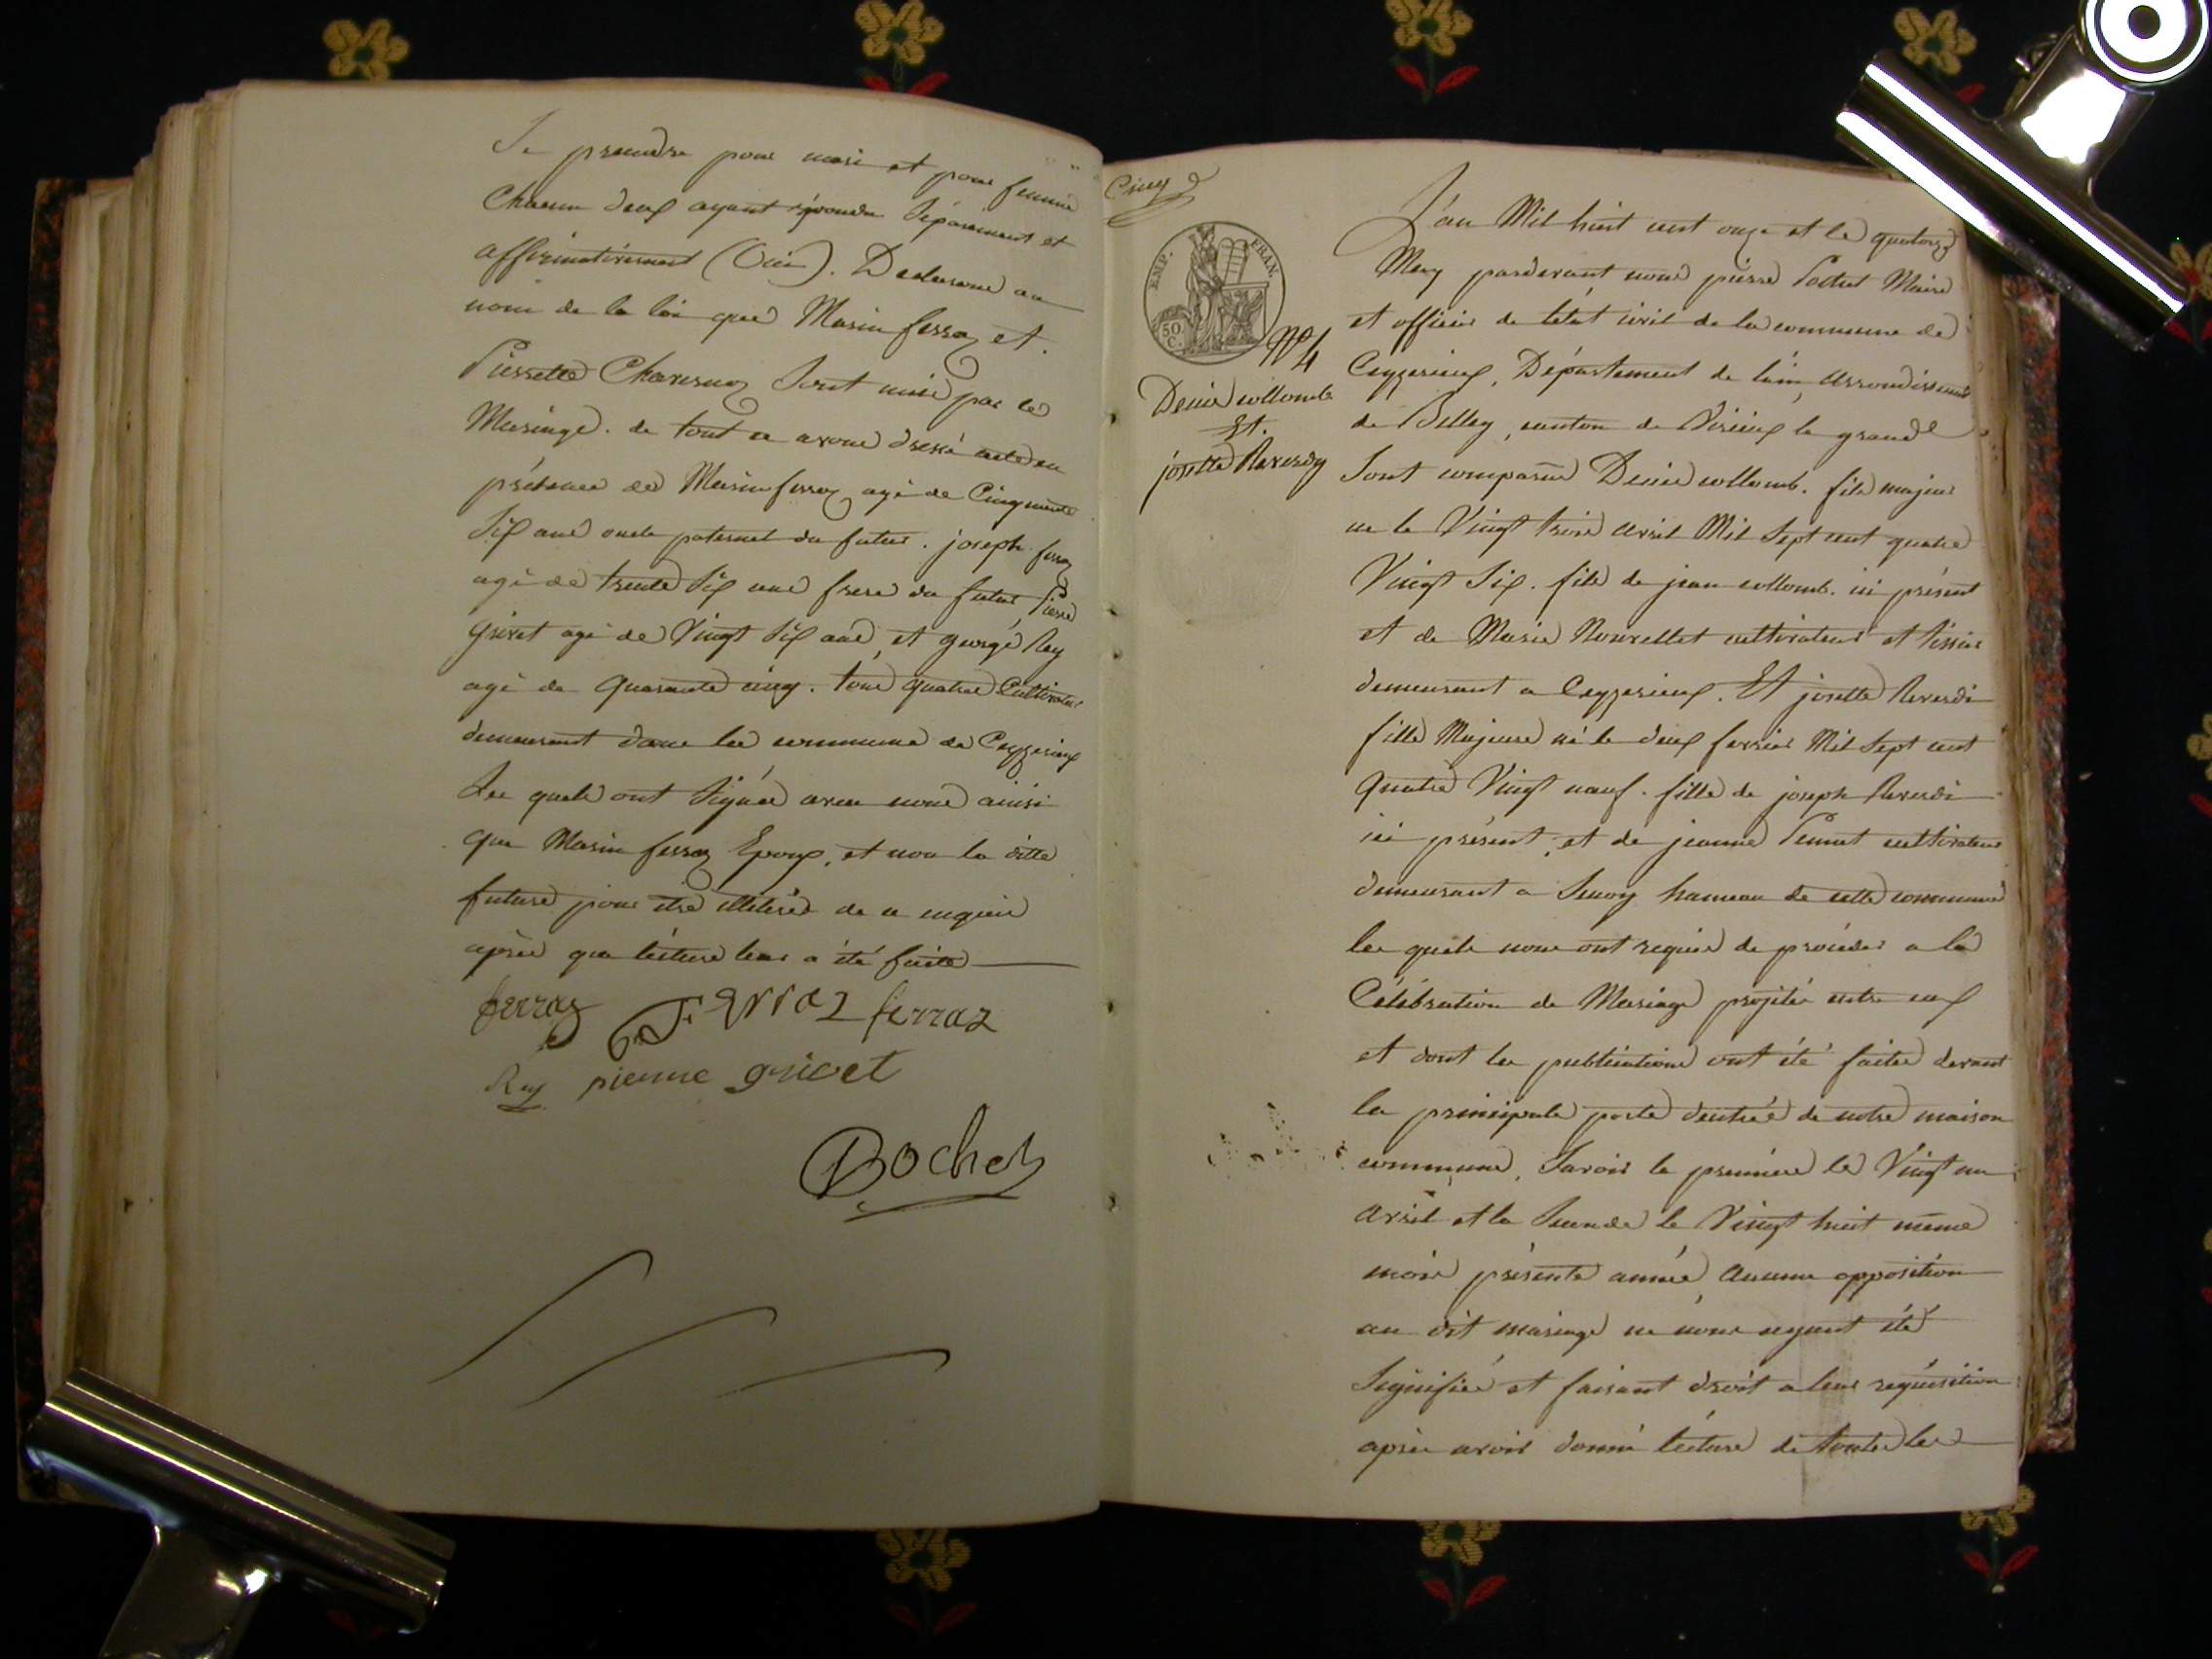 Se prendre pour mari et pour femme
Chacun deux ayant répondu Séparement et
affirmativement (Oui). Declarons au
nom de la loi que Marin ferraz et
Pierrette Charvenoz Sont unis par le
Mariage. de tout ce avons dressé acte en
présence de Marin ferraz agé de Cinquante
Six ans oncle paternel du futur. joseph ferraz
agé de trente Six ans frere du futur Pierre
Grivet agé de Vingt Six ans, et george Rey
agé de quarante cinq. tous quatre Cultivateurs
demeurant dans la commune de Ceyzerieux
Les quels ont Signés avec nous ainsi
que Marin ferraz Epoux, et non la ditte
future pour être illiterée de ce enquise
après que lécture leur a été faite
ferraz Ferraz ferraz
Rey pierre grivet
Bochet
Cinq
EMP. FRAN.
50 C.
N° 4
Denis collomb
Et.
josette Reverdy
L'an Mil huit cent onze et le quatorze
May pardevant nous pierre Maire
et officier de létat civil de la commune de
Ceyzerieux, Département de lain, Arrondissement
de Belley, canton de Virieux le grand
Sont comparus Denis collomb. fils majeur
né le Vingt trois avril Mil Sept cent quatre
Vingt Six. fils de jean collomb. ici présent
et de Marie Nouvellet cultivateurs et tissier
demeurant a Ceyzerieux. Et josette Reverdi
fille Majeure né le deux fevrier Mil Sept cent
quatre Vingt neuf. fille de joseph Reverdi
ici présent, et de jeanne cultivateurs
demeurant a hameau de cette commune
les quels nous ont requis de procéder a la
Célébration de Mariage projité entre eux
et dont les publications ont été faites devant
la principale porte dentrée de notre maison
commune, Savoir la premiere le Vingt un
avril et la Seconde le Vingt huit même
mois présente année, Aucune opposition
au dit mariage ne nous ayant été
Signifiée et faisant droit a leur requisition
après avoir donné lécture de toutes les